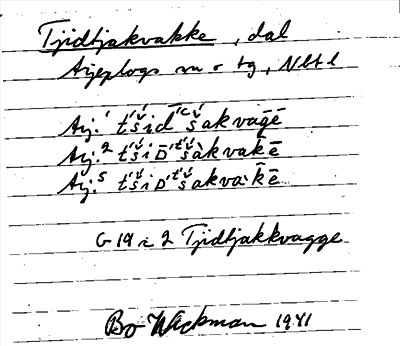 Tjidtjakvakke, dal
Arjeplogs sn o tg, Nbtl
Arj.¹ t́š́id́ᶜš́akvāḡē
Arj.² t́š́iᴅ́ᵗš́àkvak̄ē
Arj.⁵ t́š́iᴅ́ᵗš́akva·k̄ē
G 19 i 2 Tjidtjakkvagge
Bo Wickman 1941